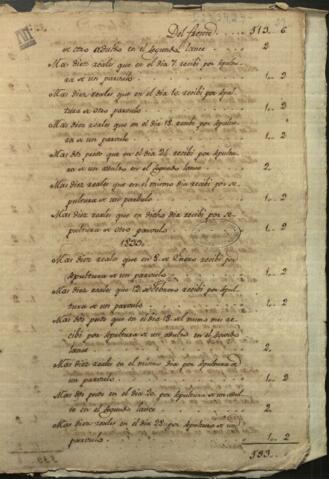 Del frente 513. 6
de otro adulto en el segundo lance 2
Mas diez reales que en el dia 7. recibi por sepultu
ra de un parvulo 1.. 2
Mas diez reales que en el dia 10. recibi por sepul
tura de otro parvulo 1.. 2
Mas diez reales que en el dia 18. recibi por sepultu
ra de un parvulo 1.. 2
Mas dos pesos que en el dia recibi por sepultu
ra de un adulto en el segundo lance 2.
Mas diez reales que en el mismo dia recibi por se
pultura de un parbulo 1.. 2
Mas diez reales que en dicho dia recibi por se
pultura de otro parvulo 1.. 2
Mas diez reales que en 8. de Enero recibi por
sepultura de un parvulo 1.. 2
Mas diez reales que 12. de Febrero recibi por sepul
tura de un parvulo 1.. 2
Mas dos pesos que en 13. del mismo mes re
cibi por sepultura de un adulto en el segundo
lance 2.
Mas diez reales en el mismo dia por sepultura de
un parvulo 1.. 2
Mas dos pesos en el dia 20. por sepultura de un adul
to en el segundo lance 2.
Mas diez reales en el dia 23. por sepultura de un
parvulo 1.. 2
533.